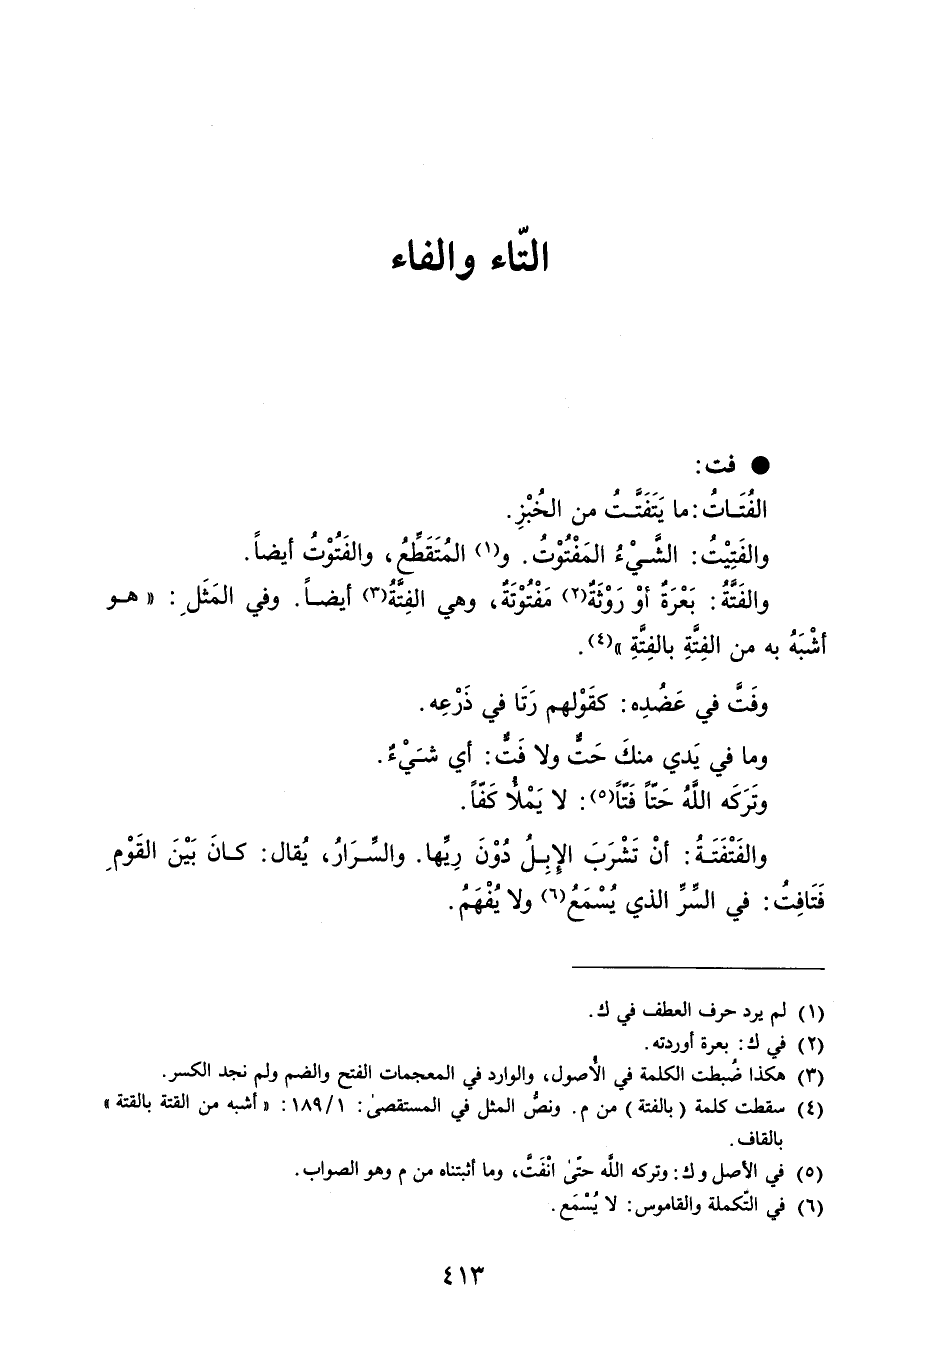 التّاء والفاء
● فت:
الفُتَـاتُ: ما يَتَفَتَّـتُ من الخُبْزِ.
والفَتِيْتُ: الشَّـيْءُ المَفْتُوْتُ. و(١) المُتَقَطِّعُ، والفَتُوْتُ أيضاً.
والفَتَّةُ: بَعْرَةٌ أوْ رَوْثَةٌ(٢) مَفْتُوْتَةٌ، وهي الفِتَّةُ(٣) أيضـاً. وفي المَثَلِ: « هـو
أشْبَهُ به من الفِتَّةِ بالفِتَّةِ »(٤).
وفَتَّ في عَضُدِه: كقَوْلهم رَتَا في ذَرْعِه.
وما في يَدي منكَ حَتٌّ ولا فَتٌّ: أي شَيْءٌ.
وتَرَكَه اللَّهُ حَتّاً فَتّاً(٥): لا يَمْلأُ كَفّاً.
والفَتْفَتَـةُ: أنْ تَشْرَبَ الإِبِـلُ دُوْنَ رِيِّها. والسِّـرَارُ، يُقال: كـانَ بَيْنَ القَوْمِ
فَتَافِتُ: في السِّرِّ الذي يُسْمَعُ(٦) ولا يُفْهَمُ.
(١) لم يرد حرف العطف في ك.
(٢) في ك: بعرة أوردته.
(٣) هكذا ضُبطت الكلمة في الأُصول، والوارد في المعجمات الفتح والضم ولم نجد الكسر.
(٤) سقطت كلمة ( بالفتة ) من م. ونصُّ المثل في المستقصىٰ: ١٨٩/١: « أشبه من القتة بالقتة »
بالقاف.
(٥) في الأصل و ك: وتركه اللَّه حتّىٰ انْفَتَّ، وما أثبتناه من م وهو الصواب.
(٦) في التّكملة والقاموس: لا يُسْمَع.
٤١٣